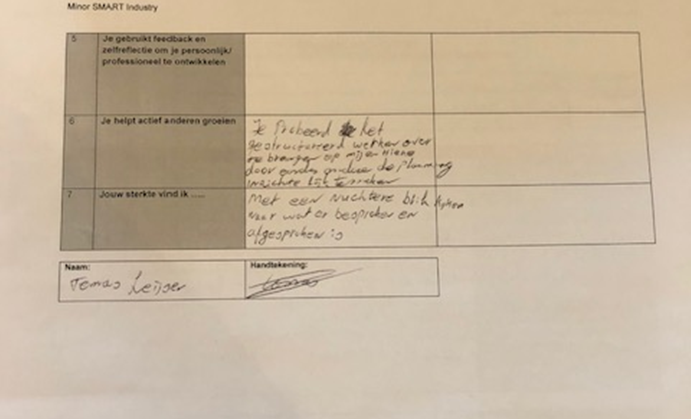 Minor SMART Industry
5
Je gebruikt feedback en
zelfreflectie om je persoonlijk/
professioneel te ontwikkelen
6
Je helpt actief anderen groeien
Je Probeerd het
gestructureerd werken over
te brengen op mij en Hidde
door de planning
7
Jouw sterkte vind ik .....
Met een nuchtere blik kijken
naar wat er besproken en
afgesproken is
Naam:
Handtekening:
Tomas